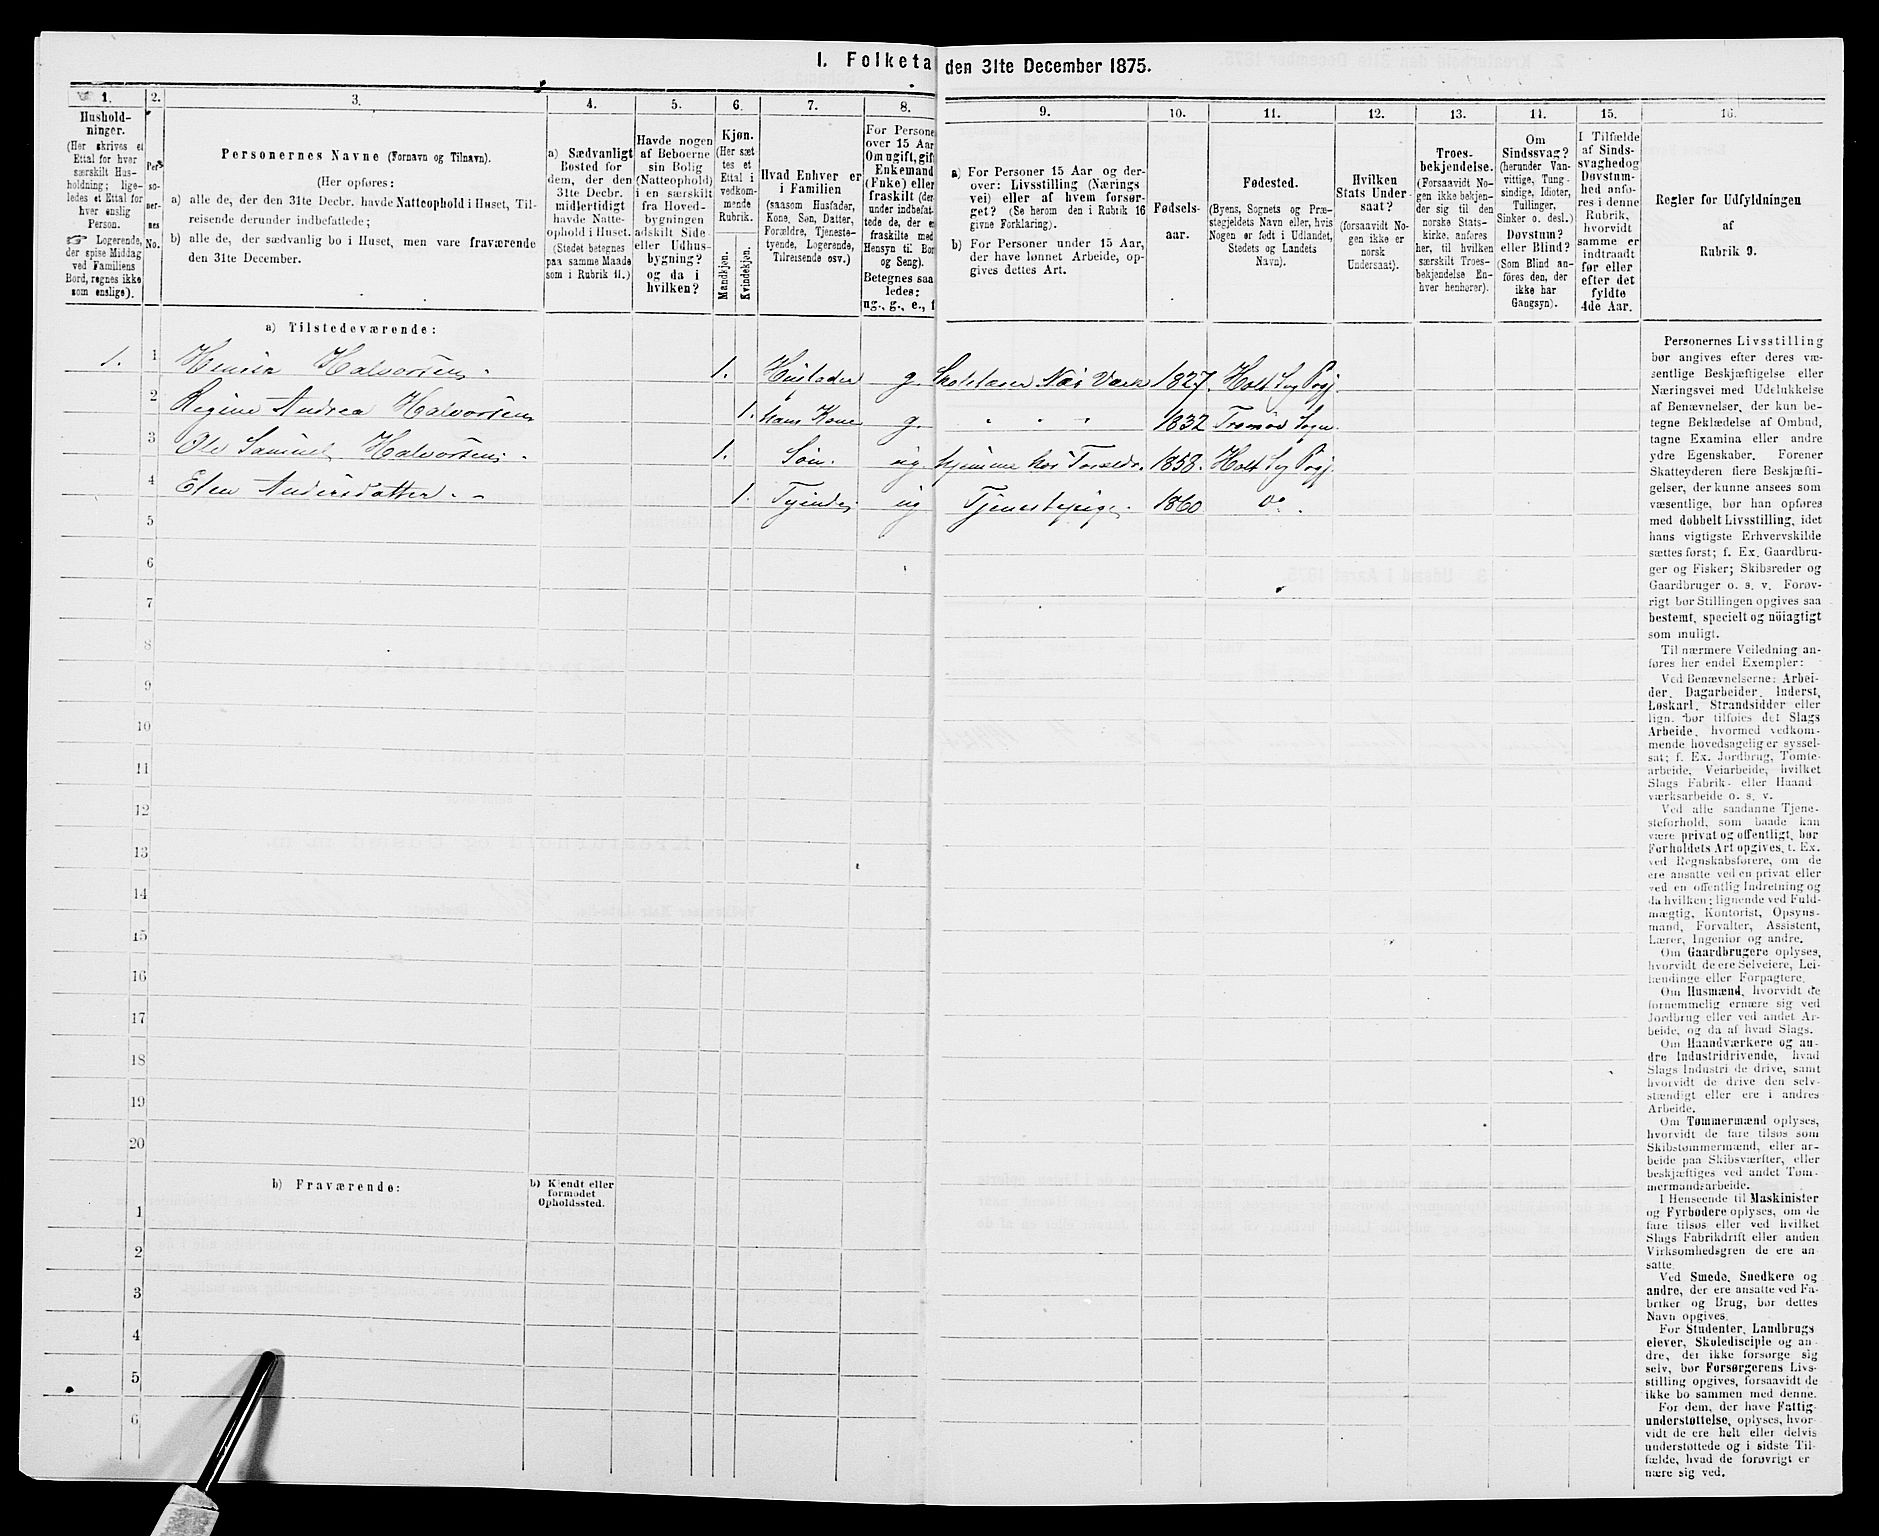 1. Folketa den 31te December 1875.
1.
Hushold-
ninger.
(Her skrives et
Ettal for hver
særskilt Hus-
holdning; lige-
ledes et Ettal for
hver enslig
Person.
☞ Logerende,
der spise Middag
ved Familiens
Bord, regnes ikke
som enslige).
2.
Per-
so-
ner-
nes
No.
3.
Personernes Navne (Fornavn og Tilnavn).
(Her opføres:
a) alle de, der den 31te Decbr. havde Natteophold i Huset, Til-
reisende derunder indbefattede;
b) alle de, der sædvanlig bo i Huset, men vare fraværende
den 31te December.
4.
a) Sædvanligt
Bosted for
dem, der den
31te Decbr.
midlertidigt
havde Natte-
ophold i Huset.
(Stedet betegnes
paa samme Maade
som i Rubrik 11.)
5.
Havde nogen
af Beboerne
sin Bolig
(Natteophold)
i en særskilt
fra Hoved-
bygningen
adskilt Side-
eller Udhus-
bygning?
og da i
hvilken?
6.
Kjøn.
(Her sæt-
tes et
Ettal i
vedkom-
mende
Rubrik.
Mandkjøn.
Kvindekjøn.
7.
Hvad Enhver er
i Familien
(saasom Husfader,
Kone, Søn, Datter,
Forældre, Tjeneste-
tyende, Logerende,
Tilreisende osv.)
8.
For Persone
over 15 Aar
Om ugift, gift
Enkemand
(Enke) eller
fraskilt (der-
under indbefat-
tede de, der e
fraskilte med
Hensyn til Bor
og Seng).
Betegnes saa
ledes:
ug., g., e., f
9.
a) For Personer 15 Aar og der-
over: Livsstilling (Nærings-
vei) eller af hvem forsør-
get? (Se herom den i Rubrik 16
givne Forklaring).
b) For Personer under 15 Aar,
der have lønnet Arbeide, op-
gives dettes Art.
10.
Fødsels-
aar.
11.
Fødested.
(Byens, Sognets og Præ-
stegjeldets Navn eller, hvis
Nogen er født i Udlandet,
Stedets og Landets
Navn).
12.
Hvilken
Stats Under-
saat?
(forsaavidt No-
gen ikke er
norsk
Undersaat).
13.
Troes-
bekjendelse.
(Forsaavidt No-
gen ikke bekjen-
der sig til den
norske Stats-
kirke, anføres
her, til hvilken
særskilt Troes-
bekjendelse En-
hver henhører).
14.
Om
Sindssvag?
(herunder Van-
vittige, Tung-
sindige, Idioter,
Tullinger,
Sinker o. desl.)
Døvstum?
eller Blind?
(Som Blind an-
føres den, der
ikke har
Gangsyn).
15.
I Tilfælde
af Sinds-
svaghed og
Døvstum-
hed anfø-
res i denne
Rubrik,
hvorvidt
samme er
indtraadt
før eller
efter det
fyldte
4de Aar.
16.
Regler for Udfyldningen
af
Rubrik 9.
a) Tilstedeværende:
1. 1 Halvorsen 1. Husfader g. Næs Værk 1827. Holt Sog Prgj.
2 Regine Andrea Halvorsen 1. hans Kone g. " " 1832 Tromø Sogn.
3 Ole Samuel Halvorsen 1. Søn. ug. hjemme hos Foreldr. 1858. Holt Sog Prgj.
4 Elen Andersdatter 1. ug Tjenestepige. 1860 Do.
5
6
7
8
9
10
11
12
13
14
15
16
17
18
19
20
b) Fraværende:
b) Kjendt eller
formodet
Opholdssted.
1
2
3
4
5
6
Personernes Livsstilling
bør angives efter deres væ-
sentlige Beskjæftigelse eller
Næringsvei med Udelukkelse
af Benævnelser, der kun be-
tegne Beklædelse af Ombud,
tagne Examina eller andre
ydre Egenskaber. Forener
Skatteyderen flere Beskjæfti-
gelser, der kunne ansees som
væsentlige, bør han opføres
med dobbelt Livsstilling, idet
hans vigtigste Erhvervskilde
sættes først; f. Ex. Gaardbru-
ger og Fisker; Skibsreder og
Gaardbruger o. s. v. Forøv-
rigt bør Stillingen opgives saa
bestemt, specielt og nöiagtigt
som muligt.
Til nærmere Veiledning an-
føres her endel Exempler:
Ved Benævnelserne: Arbei-
der, Dagarbeider, Inderst,
Løskarl, Strandsidder eller
lign. bør tilføies det Slags
Arbeide, hvormed vedkom-
mende hovedsagelig er syssel-
sat; f. Ex. Jordbrug, Tomte-
arbeide, Veiarbeide, hvilket
Slags Fabrik- eller Haand-
værksarbeide o. s. v.
Ved alle saadanne Tjene-
steforhold, som baade kan
være privat og offentligt, bør
Forholdets Art opgives, t. Ex.
ved Regnskabsførere, om de
ere ansatte ved en privat eller
ved en offentlig Indretning og
da hvilken; lignende ved Fuld-
mægtig, Kontorist, Opsyns-
mand, Forvalter, Assistent,
Lærer, Ingeniør og andre.
Om Gaardbrugere oplyses,
hvorvidt de ere Selveiere, Lei-
lændinge eller Forpagtere.
Om Husmænd, hvorvidt de
fornemmelig ernære sig ved
Jordbrug eller ved andet Ar-
beide, og da af hvad Slags.
Om Haandværkere og an-
dre Industridrivende, hvad
Slags Industri de drive, samt
hvorvidt de drive den selv-
stændigt eller ere i andres
Arbeide.
Om Tømmermænd oplyses,
hvorvidt de fare tilsøs som
Skibstømmermænd, eller ar-
beide paa Skibsværfter, eller
beskjæftiges ved andet Tøm-
mermandsarbeide.
I Henseende til Maskinister
og Fyrbødere oplyses, om de
fare tilsøs eller ved hvilket
Slags Fabrikdrift eller anden
Virksomhedsgren de ere an-
satte.
Ved Smede, Snedkere og
andre, der ere ansatte ved Fa-
briker og Brug, bør dettes
Navn opgives.
For Studenter, Landbrugs-
elever, Skoledisciple og an-
dre, der ikke forsørge sig
selv, bør Forsørgerens Livs-
stilling opgives, forsaavidt de
ikke bo sammen med denne.
For dem, der have Fattig-
understøttelse, oplyses, hvor-
vidt de ere helt eller delvis
understøttede og i sidste Til-
fælde, hvad de forøvrigt er-
nære sig ved.